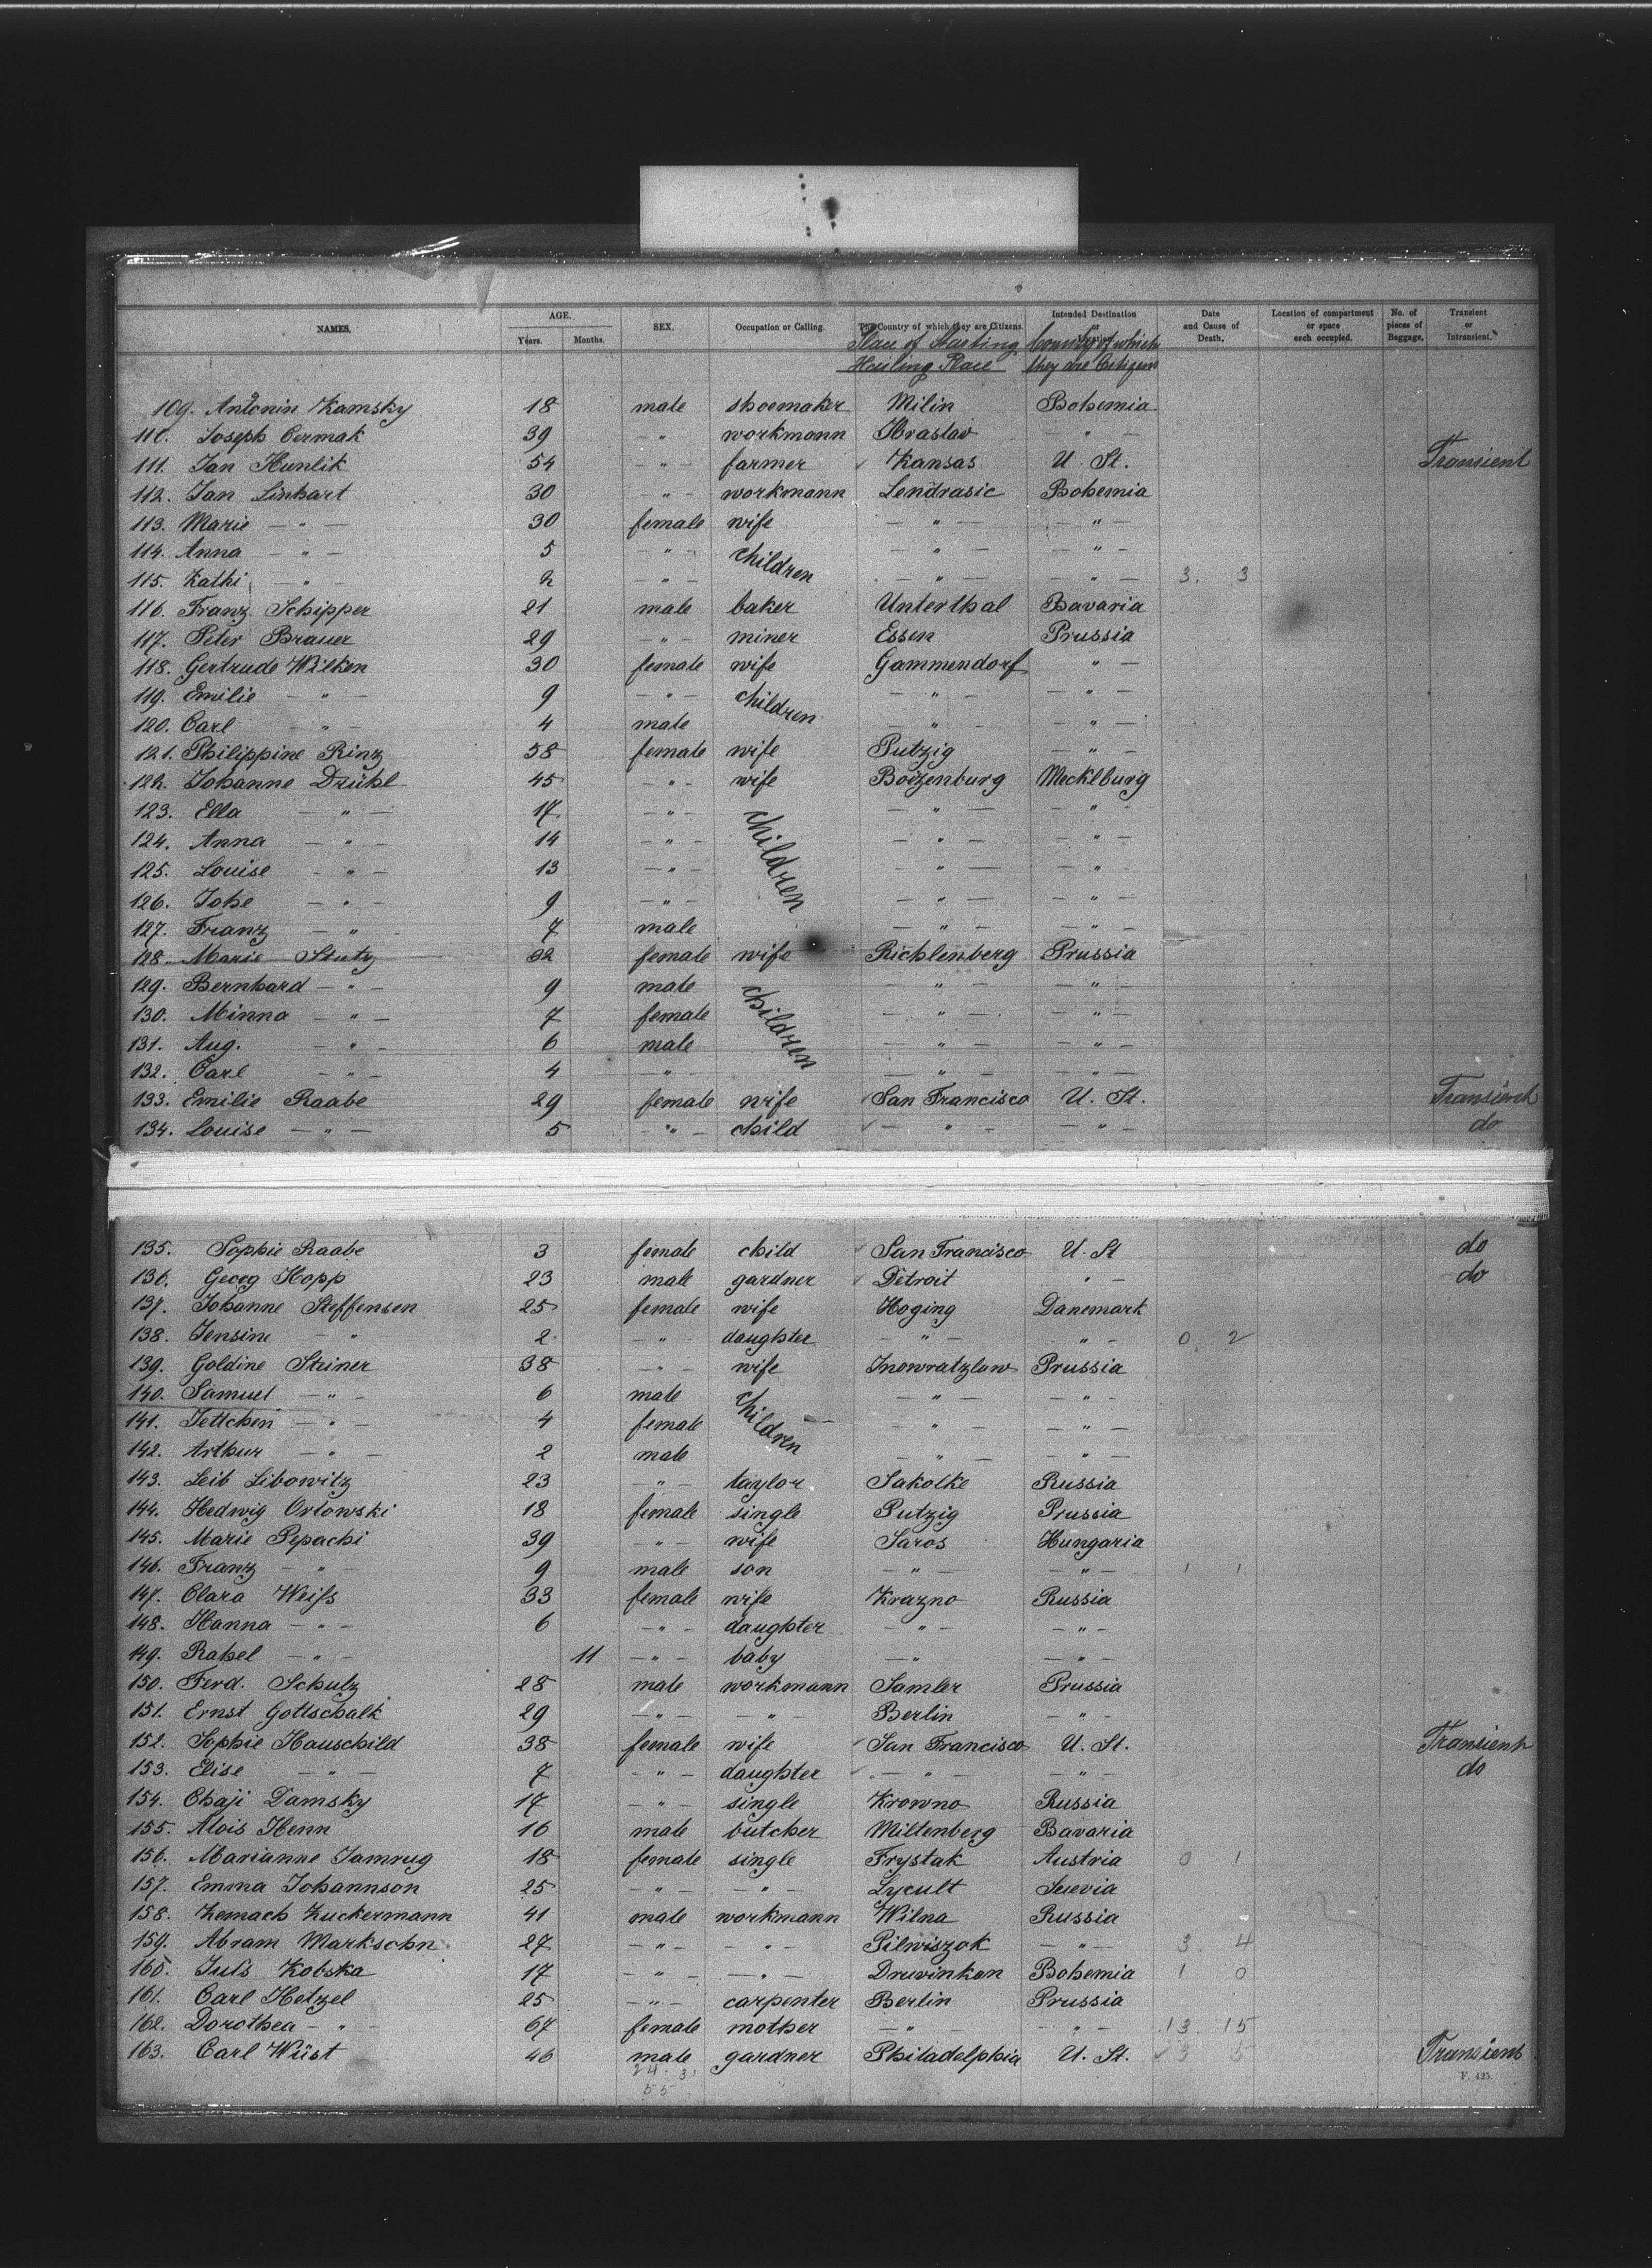 NAMES. AGE. Years. Months. SEX. Occupation or Calling. The Country of which they are Citizens. Intended Destination or Location. Date and Cause of Death. Location of compartment or space each occupied. No. of pieces of Baggage. Transient or Intransient.
Place of Starting County of which
Hailing Place they are Citizens
109. Antonin Kamsky 18 male shoemaker Milin Bohemia
110. Joseph Cermak 39 " workmann Hraslav "
111. Jan Hunlik 54 " farmer Kansas U. St. Transient
112. Jan Linhart 30 " workmann Lendrasic Bohemia
113. Marie " 30 female wife " "
114. Anna " 5 " children " "
115. Kathi " 2 " " " 3. 3
116. Franz Schipper 21 male baker Unterthal Bavaria
117. Peter Brauer 29 " miner Essen Prussia
118. Gertrude Wilken 30 female wife Gammendorf "
119. Emilie " 9 " children " "
120. Carl " 4 male " "
121. Philippine Rinz 58 female wife Putzig "
122. Johanne Drühl 45 " wife Boizenburg Mecklburg
123. Ella " 17 " children " "
124. Anna " 14 " " "
125. Louise " 13 " " "
126. Johe " 9 " " "
127. Franz " 7 male " "
128. Marie Stutz 32 female wife Richlenberg Prussia
129. Bernhard " 9 male children " "
130. Minna " 7 female " "
131. Aug. " 6 male " "
132. Carl " 4 " " "
133. Emilie Raabe 29 female wife San Francisco U. St. Transient
134. Louise " 5 " child " " do
135. Sophie Raabe 3 female child San Francisco U. St do
136. Georg Hopp 23 male gardner Detroit " do
137. Johanne Steffensen 25 female wife Hoging Danemark
138. Jensine " 2 " daughter " " 0 2
139. Goldine Steiner 38 " wife Inowratzlaw Prussia
140. Samuel " 6 male children " "
141. Jettchen " 4 female " "
142. Arthur " 2 male " "
143. Leib Libowitz 23 " taylor Sakolke Russia
144. Hedwig Orlowski 18 female single Putzig Prussia
145. Marie Pepachi 39 " wife Saros Hungaria
146. Franz " 9 male son " " 1 1
147. Clara Weiſs 33 female wife Krazno Russia
148. Hanna " 6 " daughter " "
149. Rahel " 11 " baby " "
150. Ferd. Schulz 28 male workmann Samler Prussia
151. Ernst Gottschalk 29 " " Berlin "
152. Sophie Hauschild 38 female wife San Francisco U. St. Transient
153. Elise " 7 " daughter " " do
154. Chaji Damsky 17 " single Krowno Russia
155. Alois Henn 16 male butcher Miltenberg Bavaria
156. Marianne Jamrug 18 female single Frystak Austria 0 1
157. Emma Johannson 25 " " Lycult Suevia
158. Zemach Zuckermann 41 male workmann Wilna Russia
159. Abram Marksohn 27 " " Pilwiszok " 3. 4
160. Juls Kobska 17 " " Druvinkan Bohemia 1 0
161. Carl Hetzel 25 " carpenter Berlin Prussia
162. Dorothea " 67 female mother " " 13. 15
163. Carl Wüst 46 male gardner Philadelphia U. St. 3 5 Transient
24 31
55
F. 425.